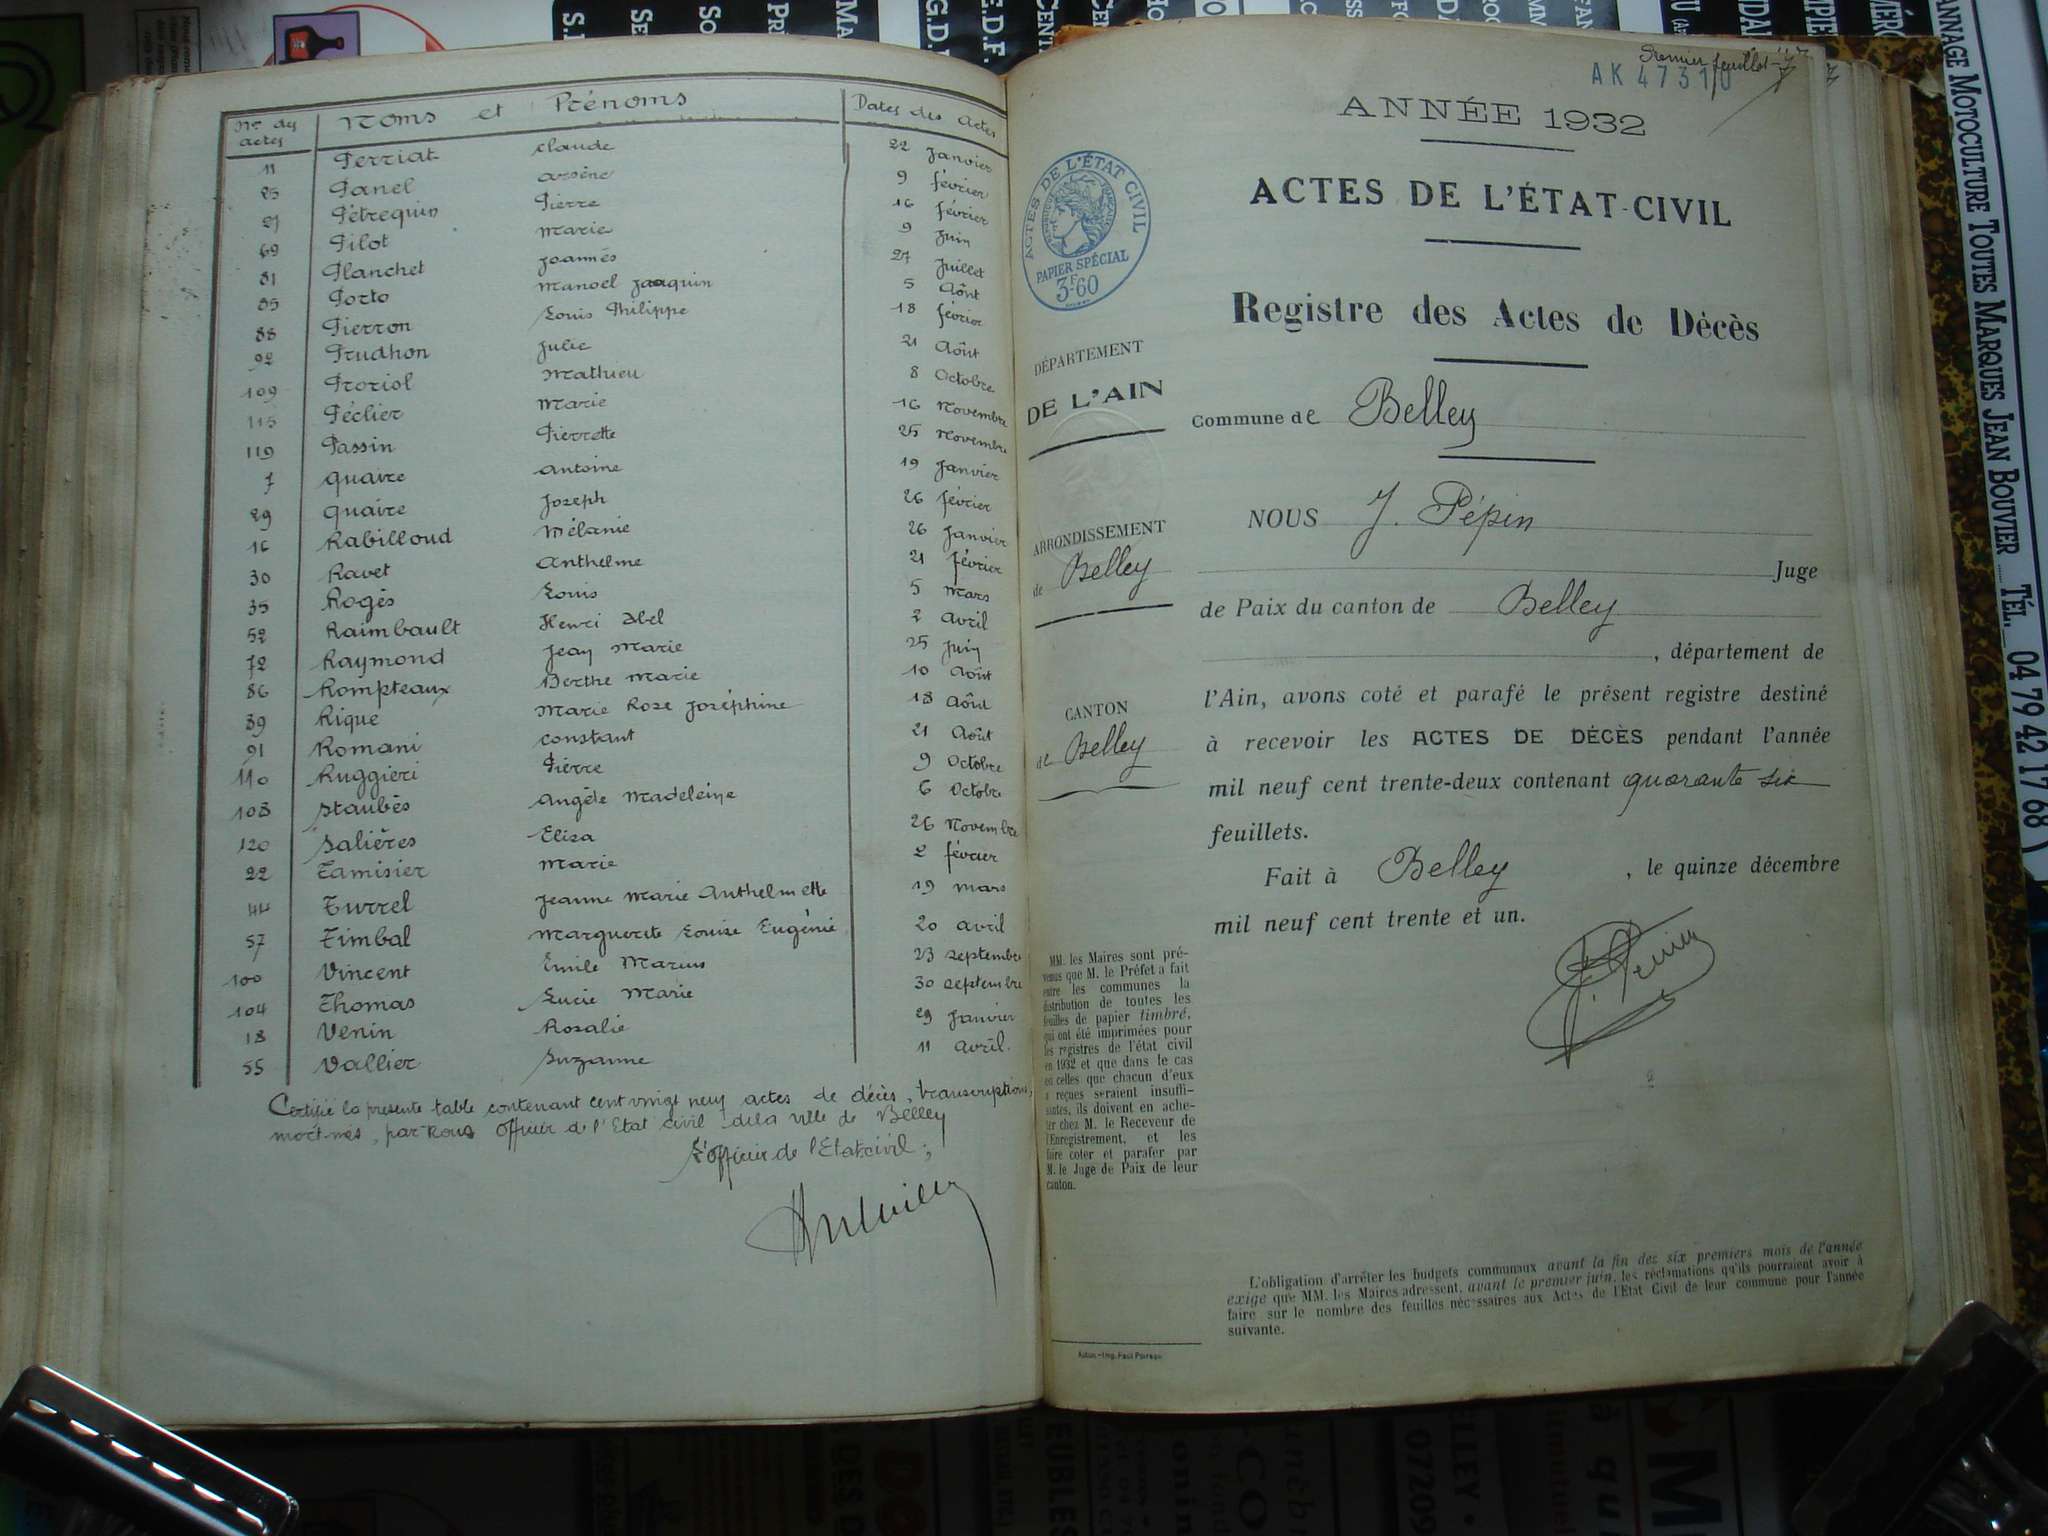 Nos des actes Noms et Prénoms Dates des Actes
11 Perriat Claude 22 Janvier
25 Panel Arsène 9 février
27 Pétrequin Pierre 16 février
69 Pilot Marie 9 Juin
81 Planchet Joannès 27 Juillet
85 Porto Manoel Joaquin 5 Août
88 Pierron Louis Philippe 18 février
92 Prudhon Julie 21 Août
109 Proriol Mathieu 8 Octobre
115 Péclier Marie 16 Novembre
119 Passin Pierrette 25 Novembre
7 Quaire Antoine 19 Janvier
29 Quaire Joseph 26 février
16 Rabilloud Mélanie 26 Janvier
30 Ravet Anthelme 21 février
35 Rogès Louis 5 Mars
52 Raimbault Henri Abel 2 Avril
72 Raymond Jean Marie 25 Juin
86 Rompteaux Berthe Marie 10 Août
89 Rique Marie Rose Joséphine 18 Août
91 Romani Constant 21 Août
110 Ruggieri Pierre 9 Octobre
108 Staubès Angèle Madeleine 6 Octobre
120 Salières Eliza 26 Novembre
22 Tamisier Marie 2 février
44 Turrel Jeanne Marie Anthelmette 19 mars
57 Timbal Marguerite Louise Eugénie 20 avril
100 Vincent Emile Marius 23 septembre
104 Thomas Lucie Marie 30 septembre
18 Venin Rosalie 29 Janvier
55 Vallier Suzanne 11 Avril.
Certifié la présente table contenant cent vingt neuf actes de décès, transcriptions,
mort-nés, par Nous Officier de l'Etat civil de la ville de Belley
L'Officier de l'Etat civil;
Premier feuillet
AK 47310
ANNÉE 1932
ACTES DE L'ÉTAT CIVIL
RÉPUBLIQUE FRANÇAISE
PAPIER SPÉCIAL
3F60
ACTES DE L'ÉTAT-CIVIL
Registre des Actes de Décès
DÉPARTEMENT
DE L'AIN
Commune de Belley
NOUS J. Pépin
ARRONDISSEMENT
de Belley
Juge
de Paix du canton de Belley
, département de
l'Ain, avons coté et parafé le présent registre destiné
CANTON
de Belley
à recevoir les ACTES DE DÉCÈS pendant l'année
mil neuf cent trente-deux contenant quarante six
feuillets.
Fait à Belley , le quinze décembre
mil neuf cent trente et un.
J. Pépin
MM. les Maires sont pré-
venus que M. le Préfet a fait
entre les communes la
distribution de toutes les
feuilles de papier timbré,
qui ont été imprimées pour
les registres de l'état civil
en 1932 et que dans le cas
où celles que chacun d'eux
a reçues seraient insuffi-
santes, ils doivent en ache-
ter chez M. le Receveur de
l'Enregistrement, et les
faire coter et parafer par
M. le Juge de Paix de leur
canton.
L'obligation d'arrêter les budgets communaux avant la fin des six premiers mois de l'année
exige que MM. les Maires adressent, avant le premier juin, les réclamations qu'ils pourraient avoir à
faire sur le nombre des feuilles nécessaires aux Actes de l'Etat Civil de leur commune pour l'année
suivante.
MOTOCULTURE TOUTES MARQUES JEAN BOUVIER ..... TÉL. 04 79 42 17 68